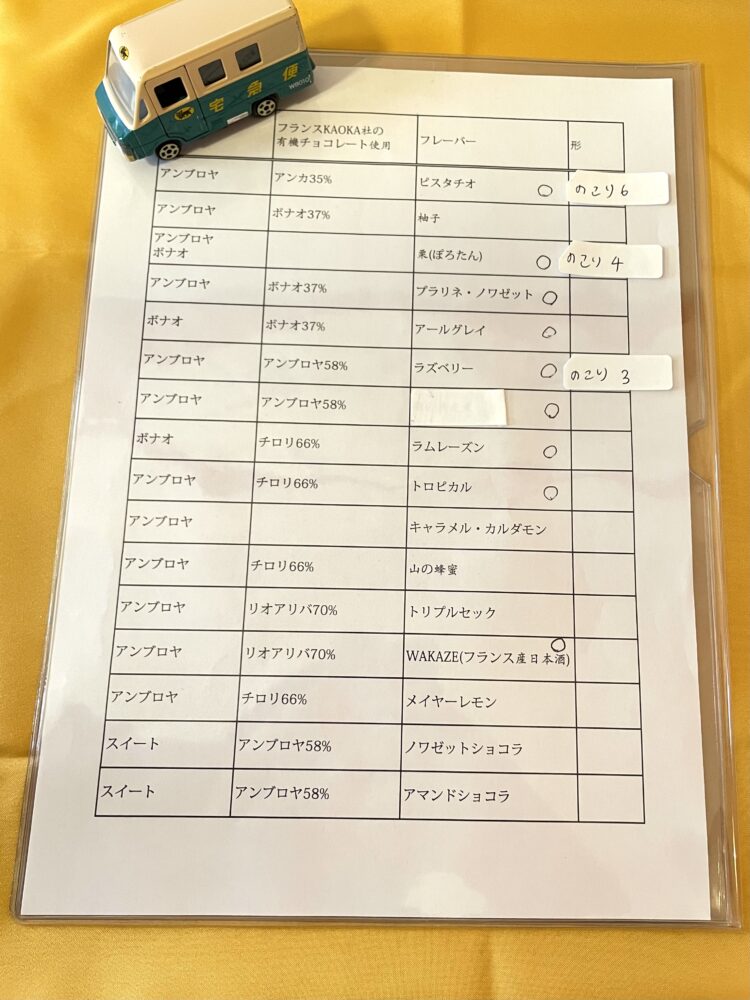 宅急便
W8010
フランスKAOKA社の
有機チョコレート使用
フレーバー
形
アンブロヤ アンカ35% ピスタチオ ○ のこり6
アンブロヤ ボナオ37% 柚子
アンブロヤ
ボナオ
栗(ぽろたん) ○ のこり 4
アンブロヤ ボナオ37% プラリネ・ノワゼット ○
ボナオ ボナオ37% アールグレイ ○
アンブロヤ アンブロヤ58% ラズベリー ○ のこり 3
アンブロヤ アンブロヤ58% ○
ボナオ チロリ66% ラムレーズン ○
アンブロヤ チロリ66% トロピカル ○
アンブロヤ キャラメル・カルダモン
アンブロヤ チロリ66% 山の蜂蜜
アンブロヤ リオアリバ70% トリプルセック
アンブロヤ リオアリバ70% WAKAZE(フランス産日本酒) ○
アンブロヤ チロリ66% メイヤーレモン
スイート アンブロヤ58% ノワゼットショコラ
スイート アンブロヤ58% アマンドショコラ